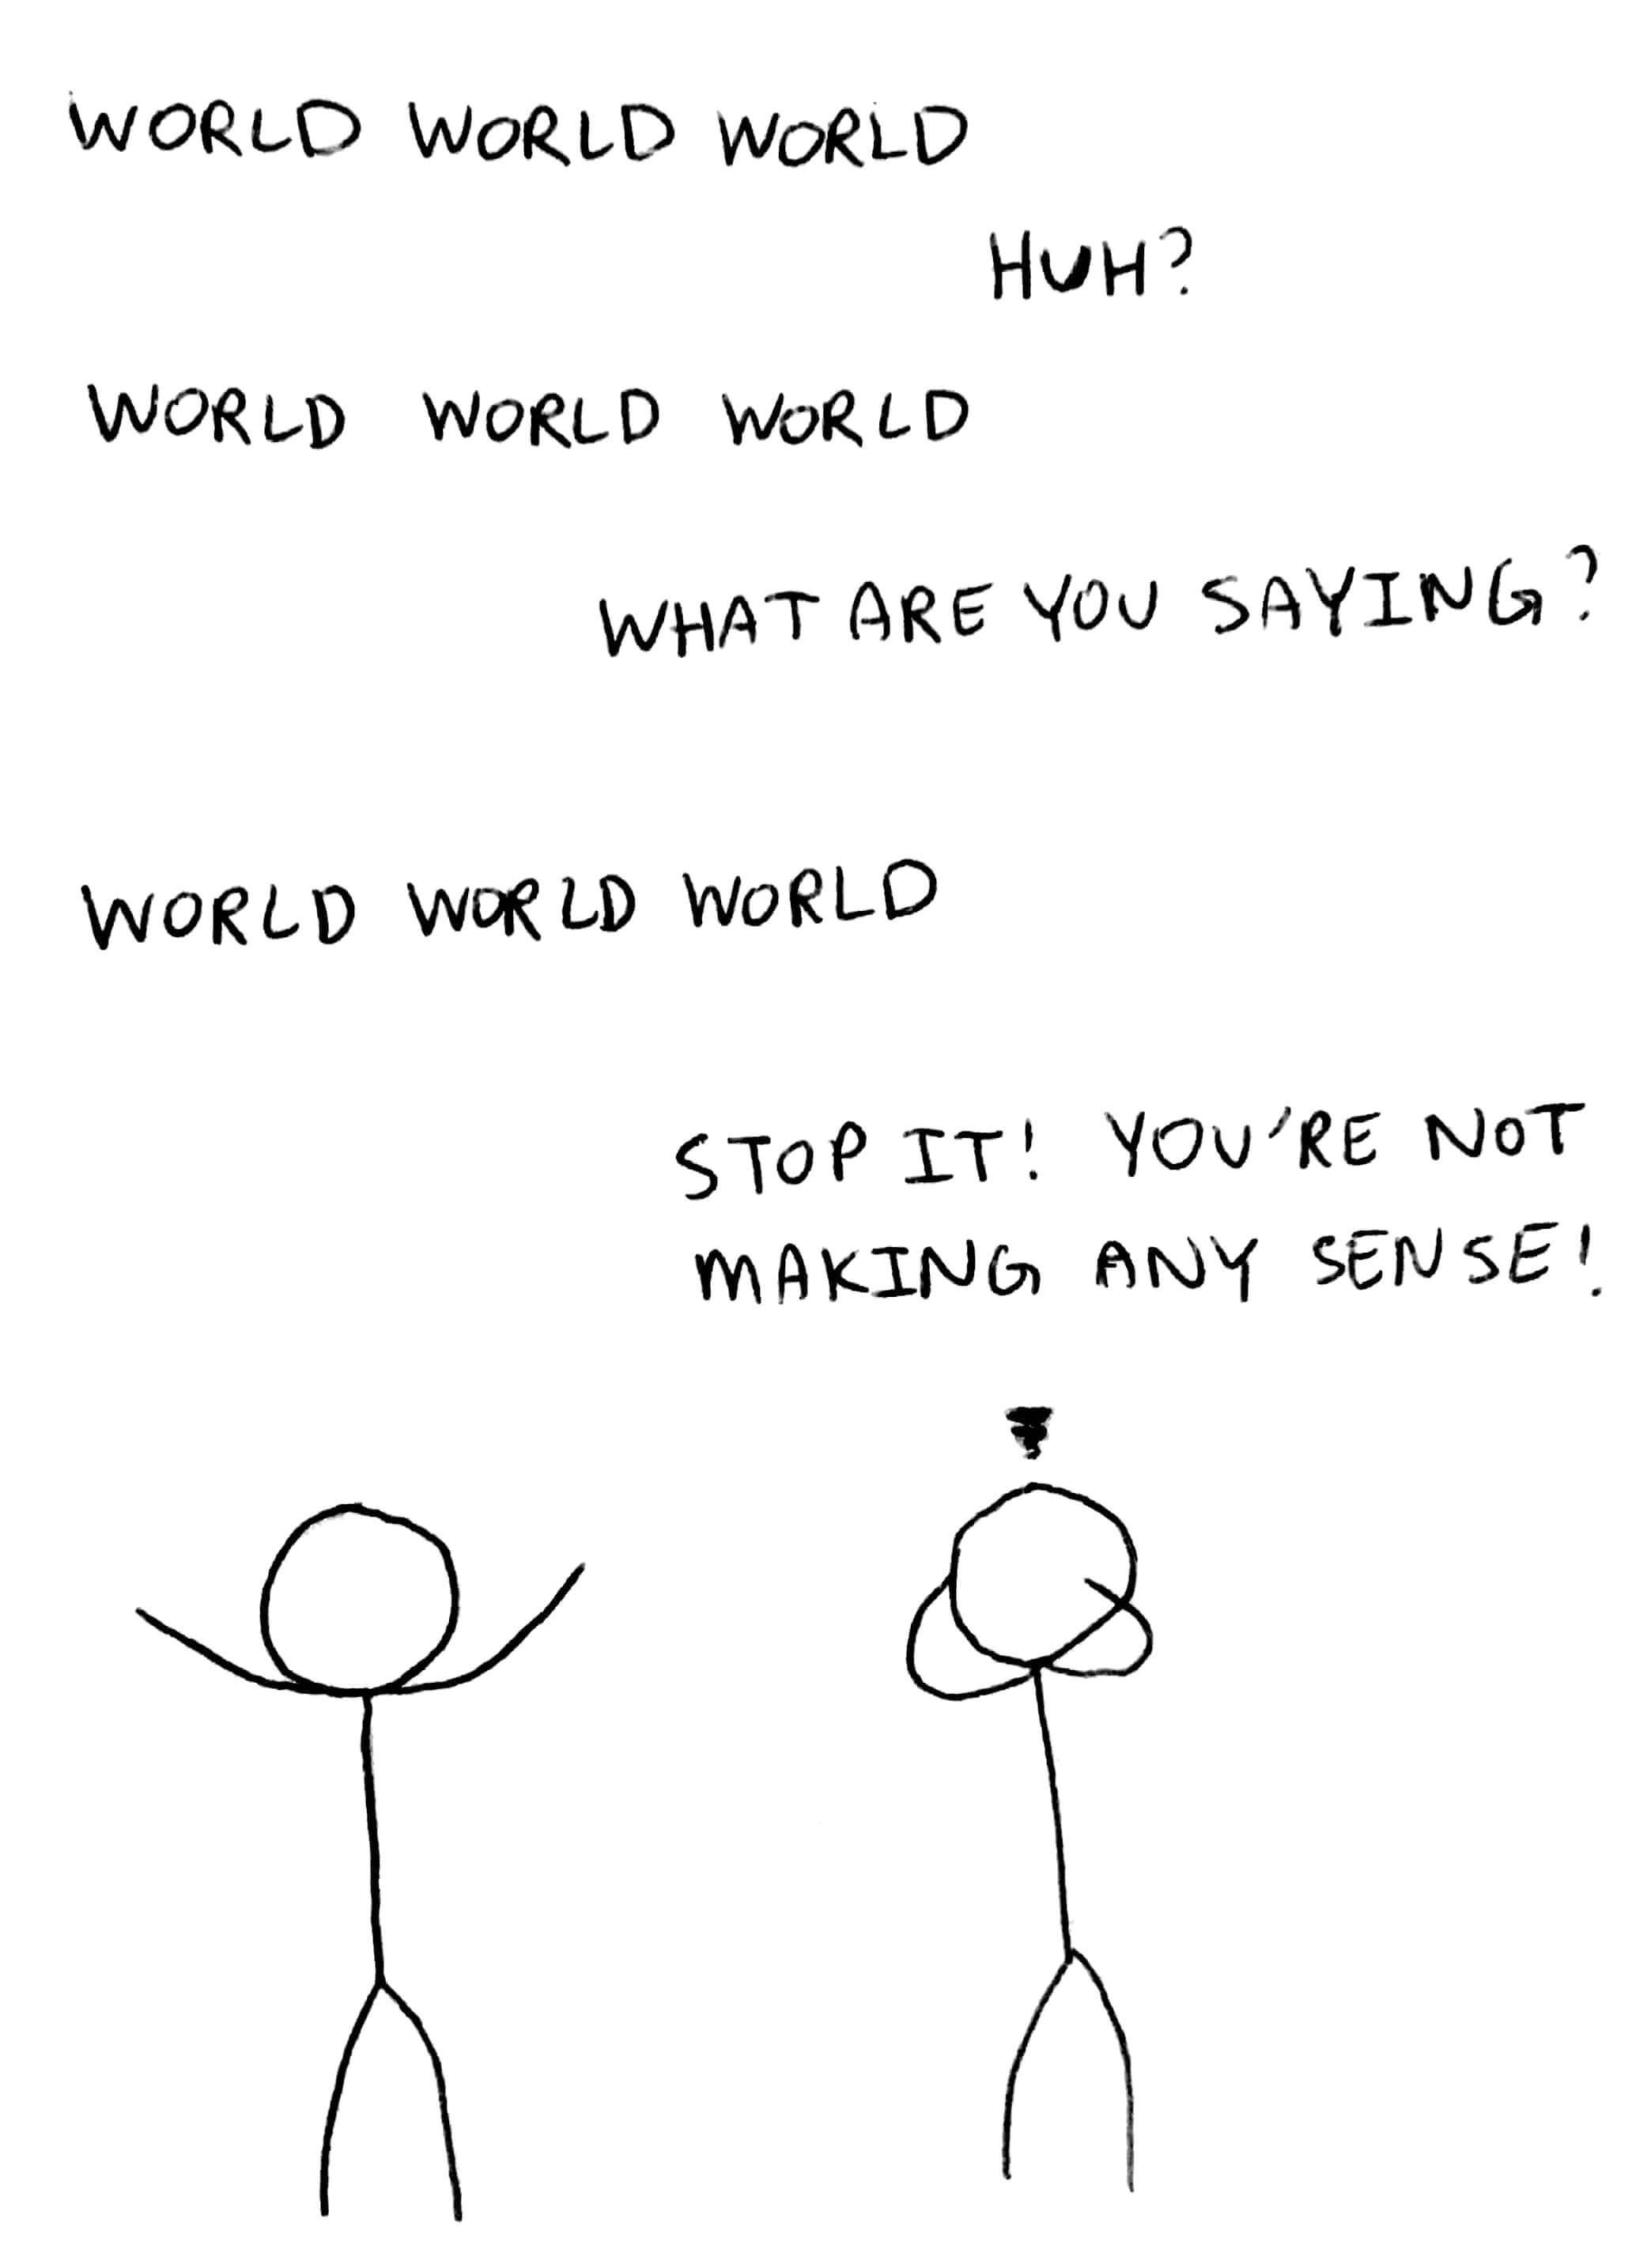 WORLD WORLD WORLD
HUH?
WORLD WORLD WORLD
WHAT ARE YOU SAYING?
WORLD WORLD WORLD
STOP IT! YOU'RE NOT
MAKING ANY SENSE!